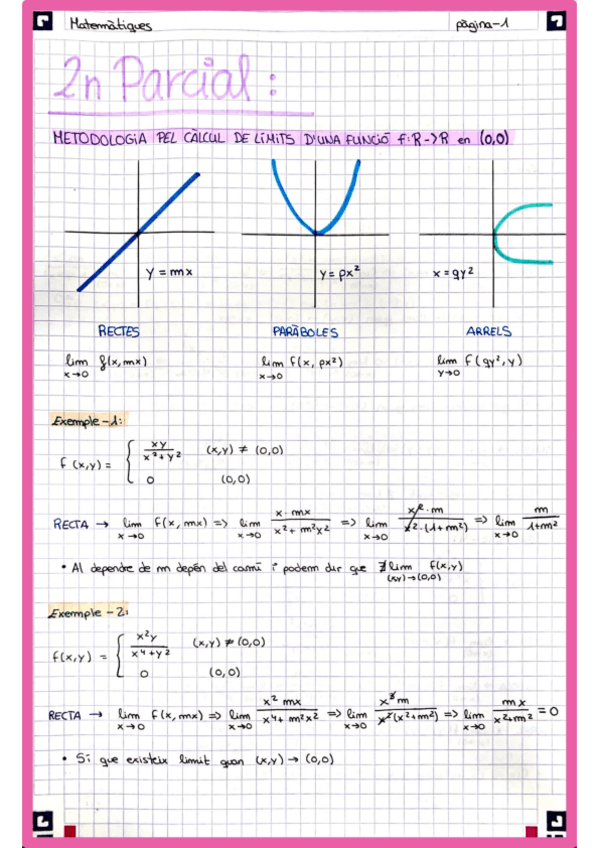 Matemàtiques pàgina-1
2n Parcial:
METODOLOGIA PEL CÀLCUL DE LÍMITS D'UNA FUNCIÓ f:R->R en (0,0)
y = mx y = px² x = qy²
RECTES PARÀBOLES ARRELS
lim x→0 f(x, mx) lim x→0 f(x, px²) lim y→0 f(qy², y)
Exemple-1:
f(x,y) = { xy / x²+y² (x,y) ≠ (0,0)
0 (0,0)
RECTA → lim x→0 f(x, mx) => lim x→0 x·mx / x²+m²x² => lim x→0 x²·m / x²·(1+m²) => lim x→0 m / 1+m²
• Al dependre de m depèn del camí i podem dir que ∄ lim (x,y)→(0,0) f(x,y)
Exemple-2:
f(x,y) = { x²y / x⁴+y² (x,y) ≠ (0,0)
0 (0,0)
RECTA → lim x→0 f(x, mx) => lim x→0 x² mx / x⁴+m²x² => lim x→0 x³m / x²(x²+m²) => lim x→0 mx / x²+m² = 0
• Sí que existeix limit quan (x,y) → (0,0)